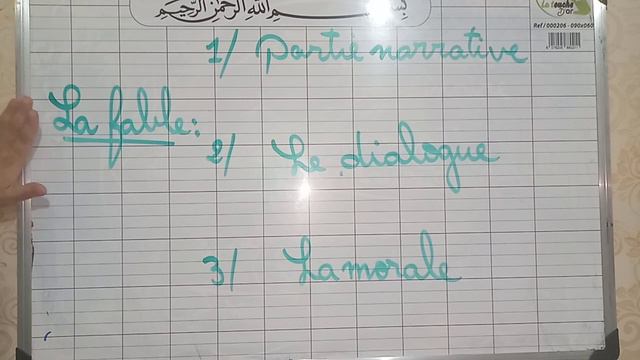 بسم الله الرحمن الرحيم
La touche
D'or
Ref / 000206 - 090x060
1/ Partie narrative
La fable:
2/ Le dialogue
3/ La morale